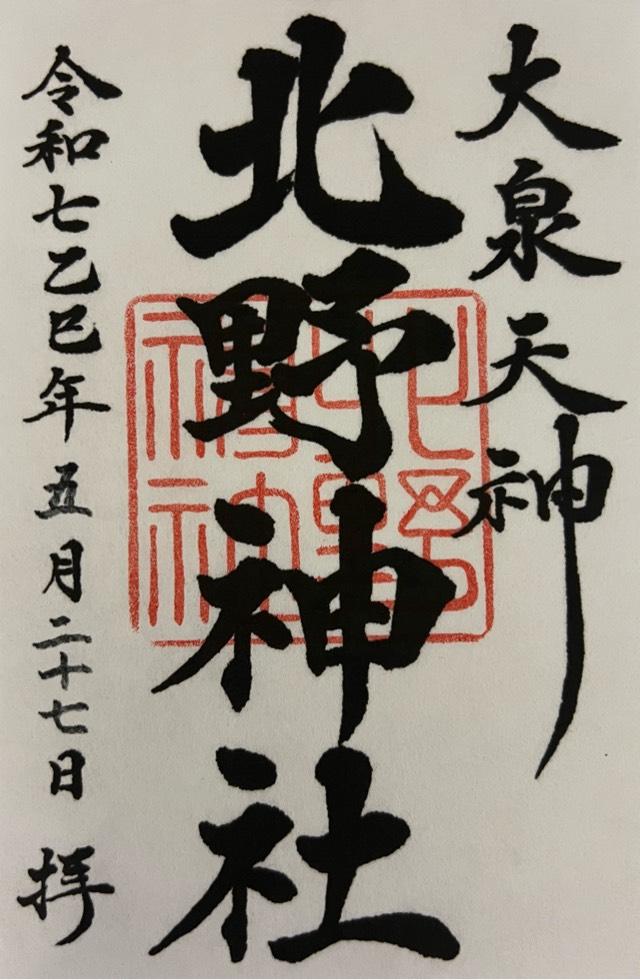 大泉天神
北野神社
北野神社
令和七乙巳年五月二十七日 拝